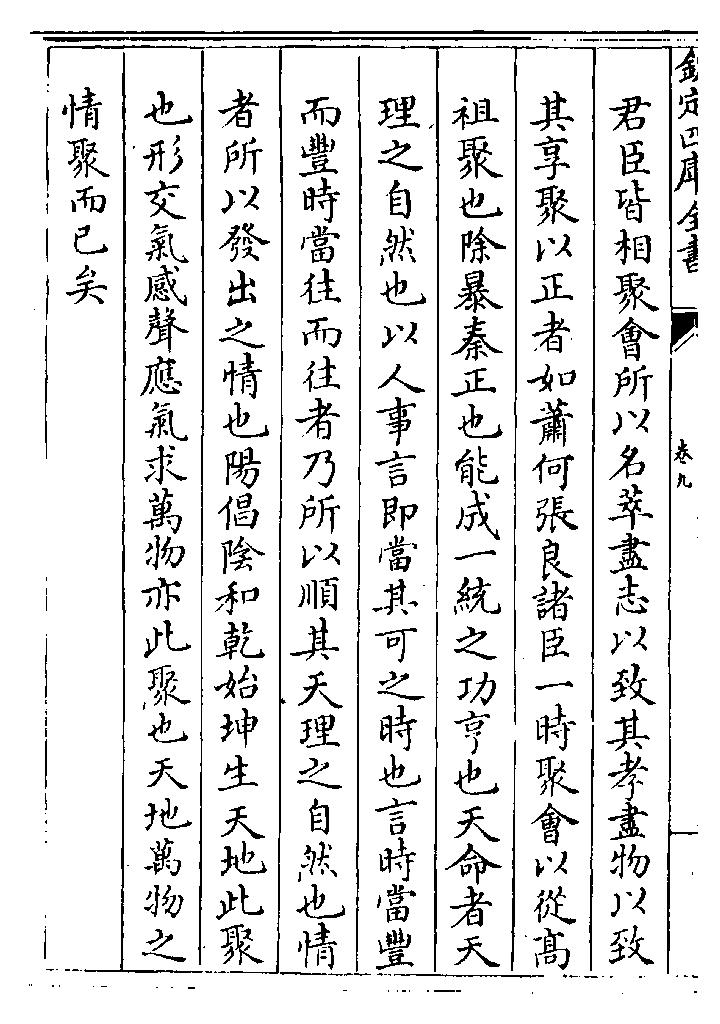 欽定四庫全書
卷九
君臣皆相聚會所以名萃盡志以致其孝盡物以致
其享聚以正者如蕭何張良諸臣一時聚會以從高
祖聚也除暴秦正也能成一統之功亨也天命者天
理之自然也以人事言即當其可之時也言時當豐
而豐時當往而往者乃所以順其天理之自然也情
者所以發出之情也陽倡陰和乾始坤生天地此聚
也形交氣感聲應氣求萬物亦此聚也天地萬物之
情聚而已矣